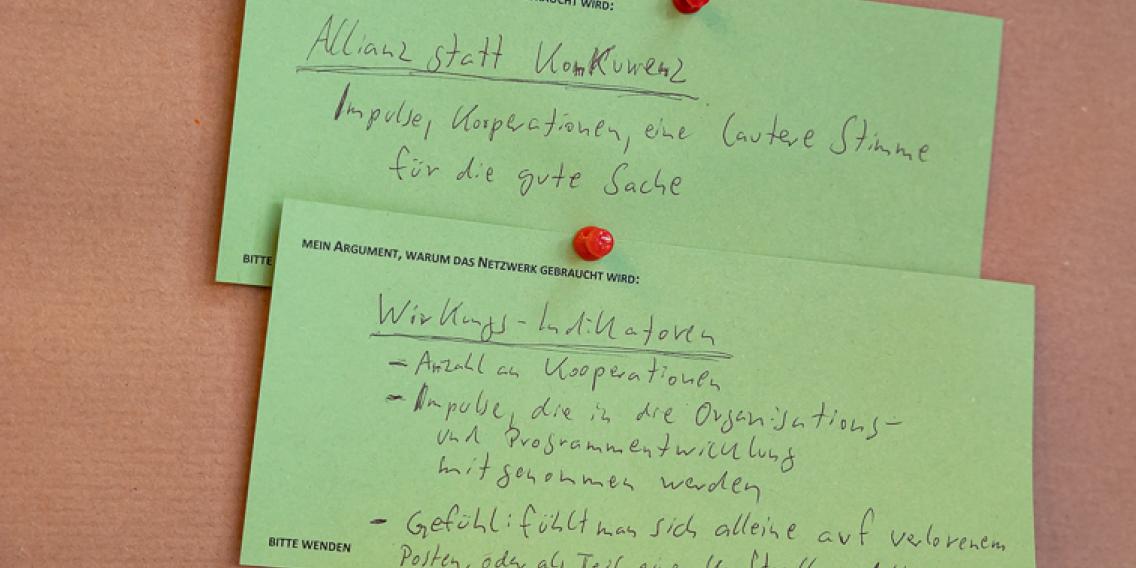 BRAUCHT WIRD:
Allianz statt Konkurrenz
Impulse, Kooperationen, eine lautere Stimme
für die gute Sache
BITTE
MEIN ARGUMENT, WARUM DAS NETZWERK GEBRAUCHT WIRD:
Wirkungs-Indikatoren
- Anzahl an Kooperationen
- Impulse, die in die Organisations-
und Programmentwicklung
mitgenommen werden
- Gefühl: fühlt man sich alleine auf verlorenem
Posten, oder als Teil
BITTE WENDEN